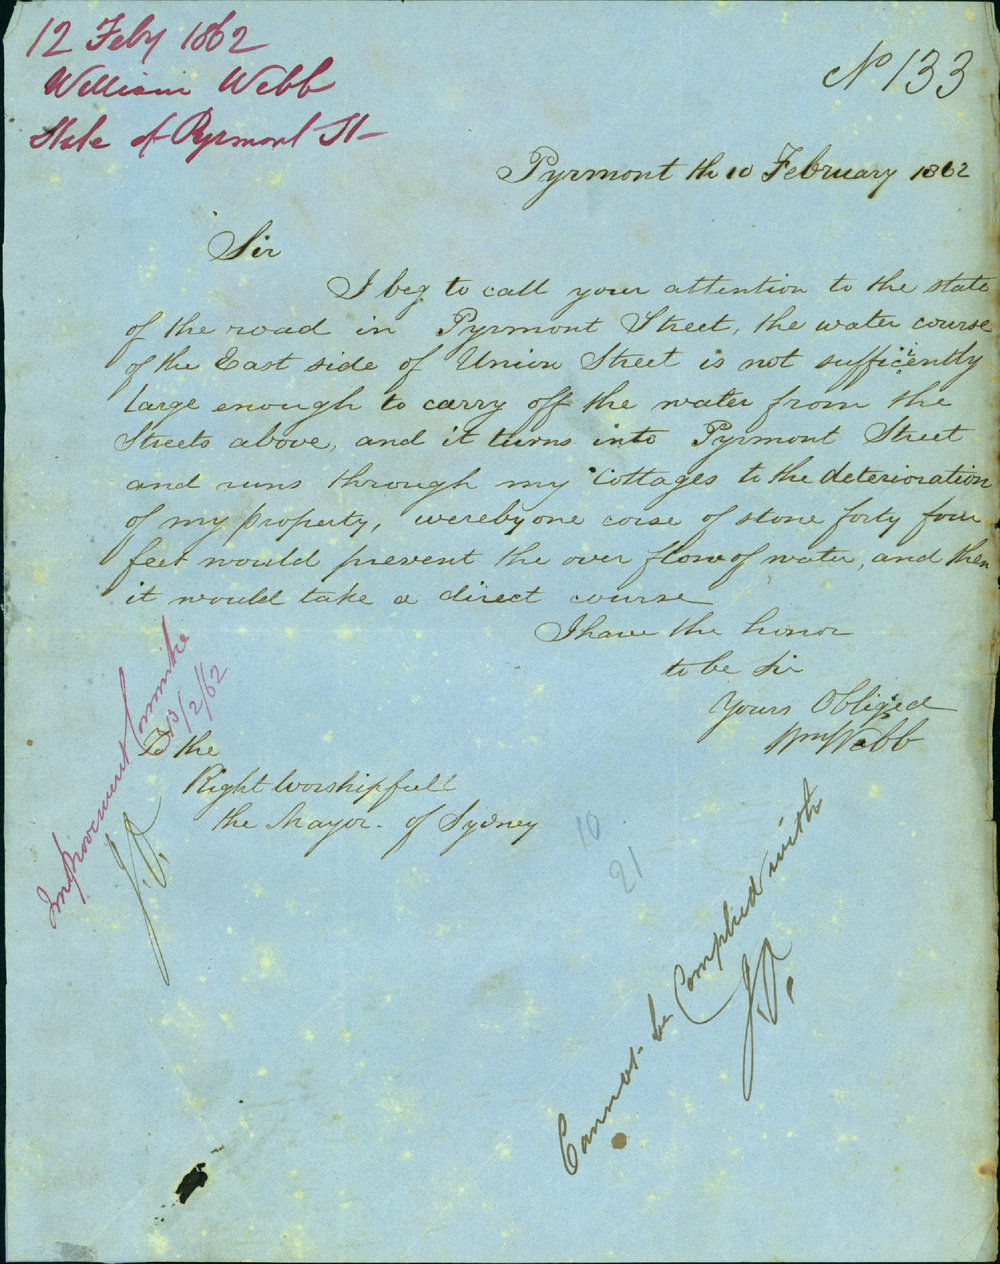 12 Feby 1862
William Webb
State of Pyrmont St
No 133
Pyrmont the 10 February 1862
Sir
I beg to call your attention to the state
of the road in Pyrmont Street, the water course
of the East side of Union Street is not sufficently
large enough to carry off the water from the
Streets above, and it turns into Pyrmont Street
and runs through my Cottages to the deterioration
of my property, wereby one corse of stone forty four
feet would prevent the over flow of water, and then
it would take a direct course
I have the honor
to be Sir
Yours Obliged
Wm Webb
To the
Right Worshipfull
the Mayor of Sydney
Improvement Committee
13/2/62
J.O.
10
21
Cannot be Complied with
J.O.